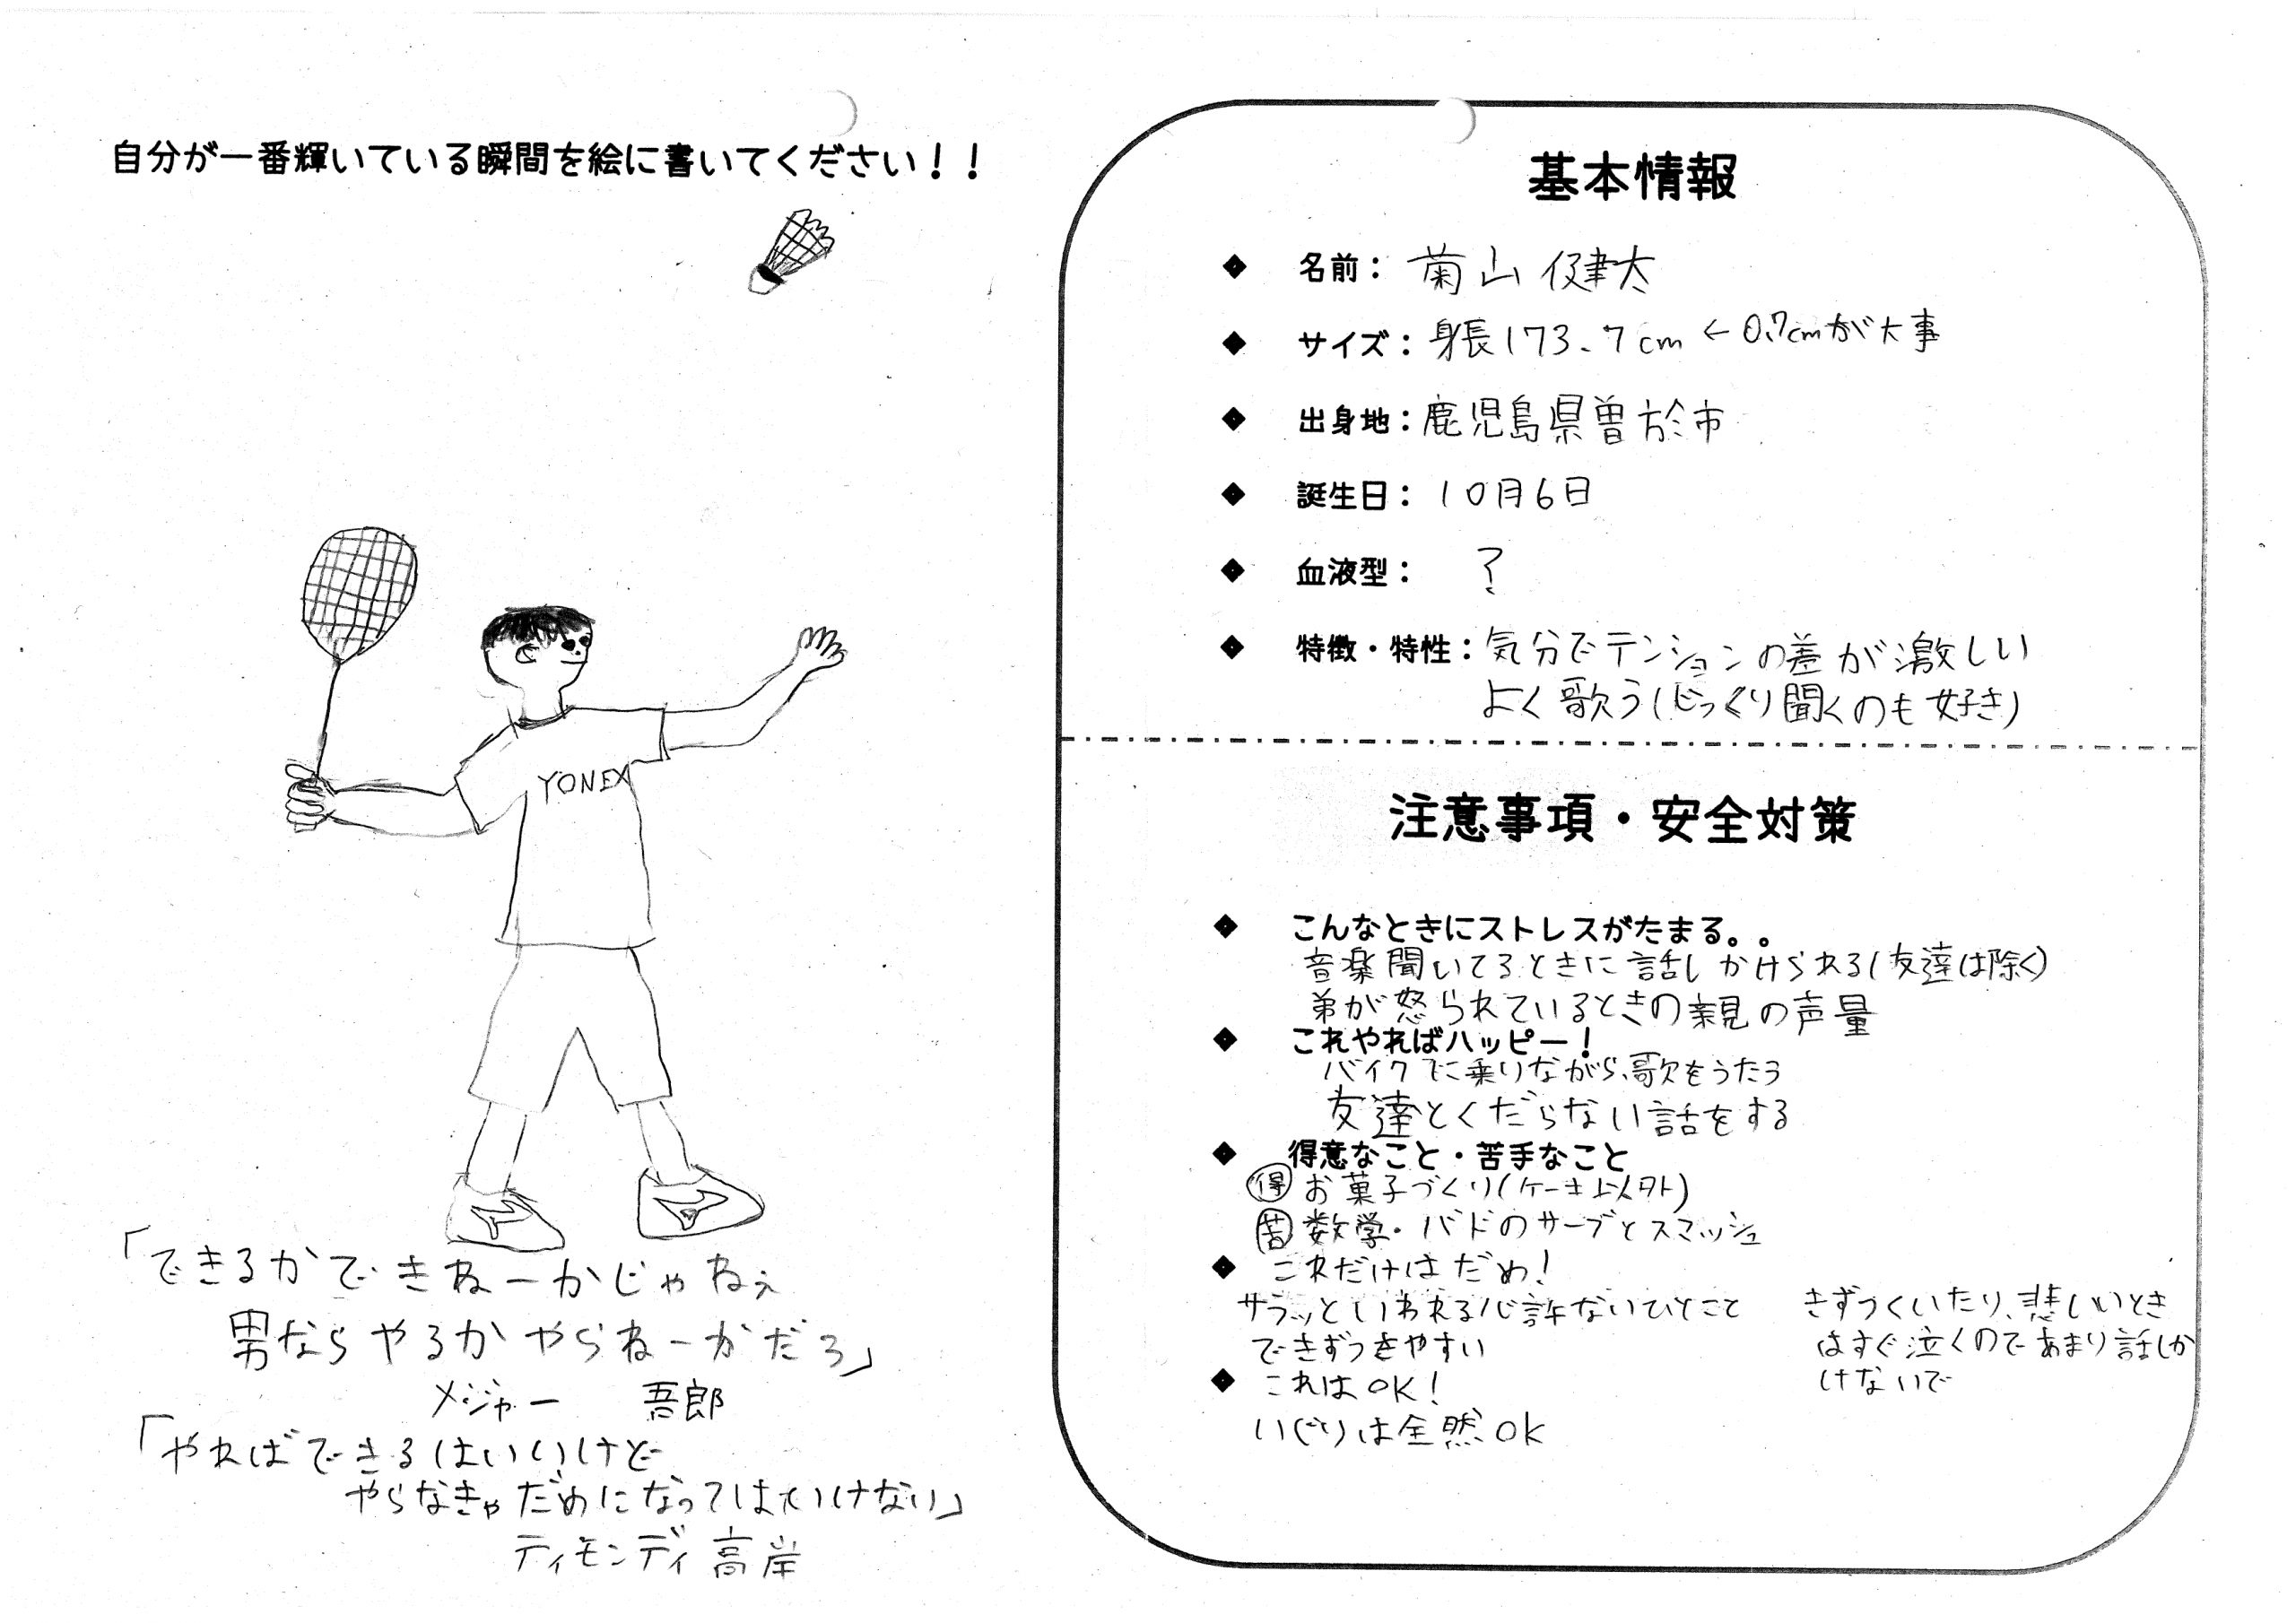 自分が一番輝いている瞬間を絵に書いてください！！
YONEX
「できるかできねーかじゃねぇ
男ならやるかやらねーかだろ」
メジャー 吾郎
「やればできるはいいけど
やらなきゃだめになってはいけない」
ティモンディ 高岸
基本情報
◆ 名前：菊山健太
◆ サイズ：身長173.7cm ← 0.7cmが大事
◆ 出身地：鹿児島県曽於市
◆ 誕生日：10月6日
◆ 血液型： ?
◆ 特徴・特性：気分でテンションの差が激しい
よく歌う(じっくり聞くのも好き)
注意事項・安全対策
◆ こんなときにストレスがたまる。。
音楽聞いてるときに話しかけられる(友達は除く)
弟が怒られているときの親の声量
◆ これやればハッピー！
バイクに乗りながら、歌をうたう
友達とくだらない話をする
◆ 得意なこと・苦手なこと
㊝ お菓子づくり(ケーキ以外)
苦 数学・バドのサーブとスマッシュ
◆ これだけはだめ！
サラッといわれる心許ないひとこと
できずつきやすい
きずつくいたり、悲しいとき
はすぐ泣くのであまり話しか
けないで
◆ これはOK！
いじりは全然OK